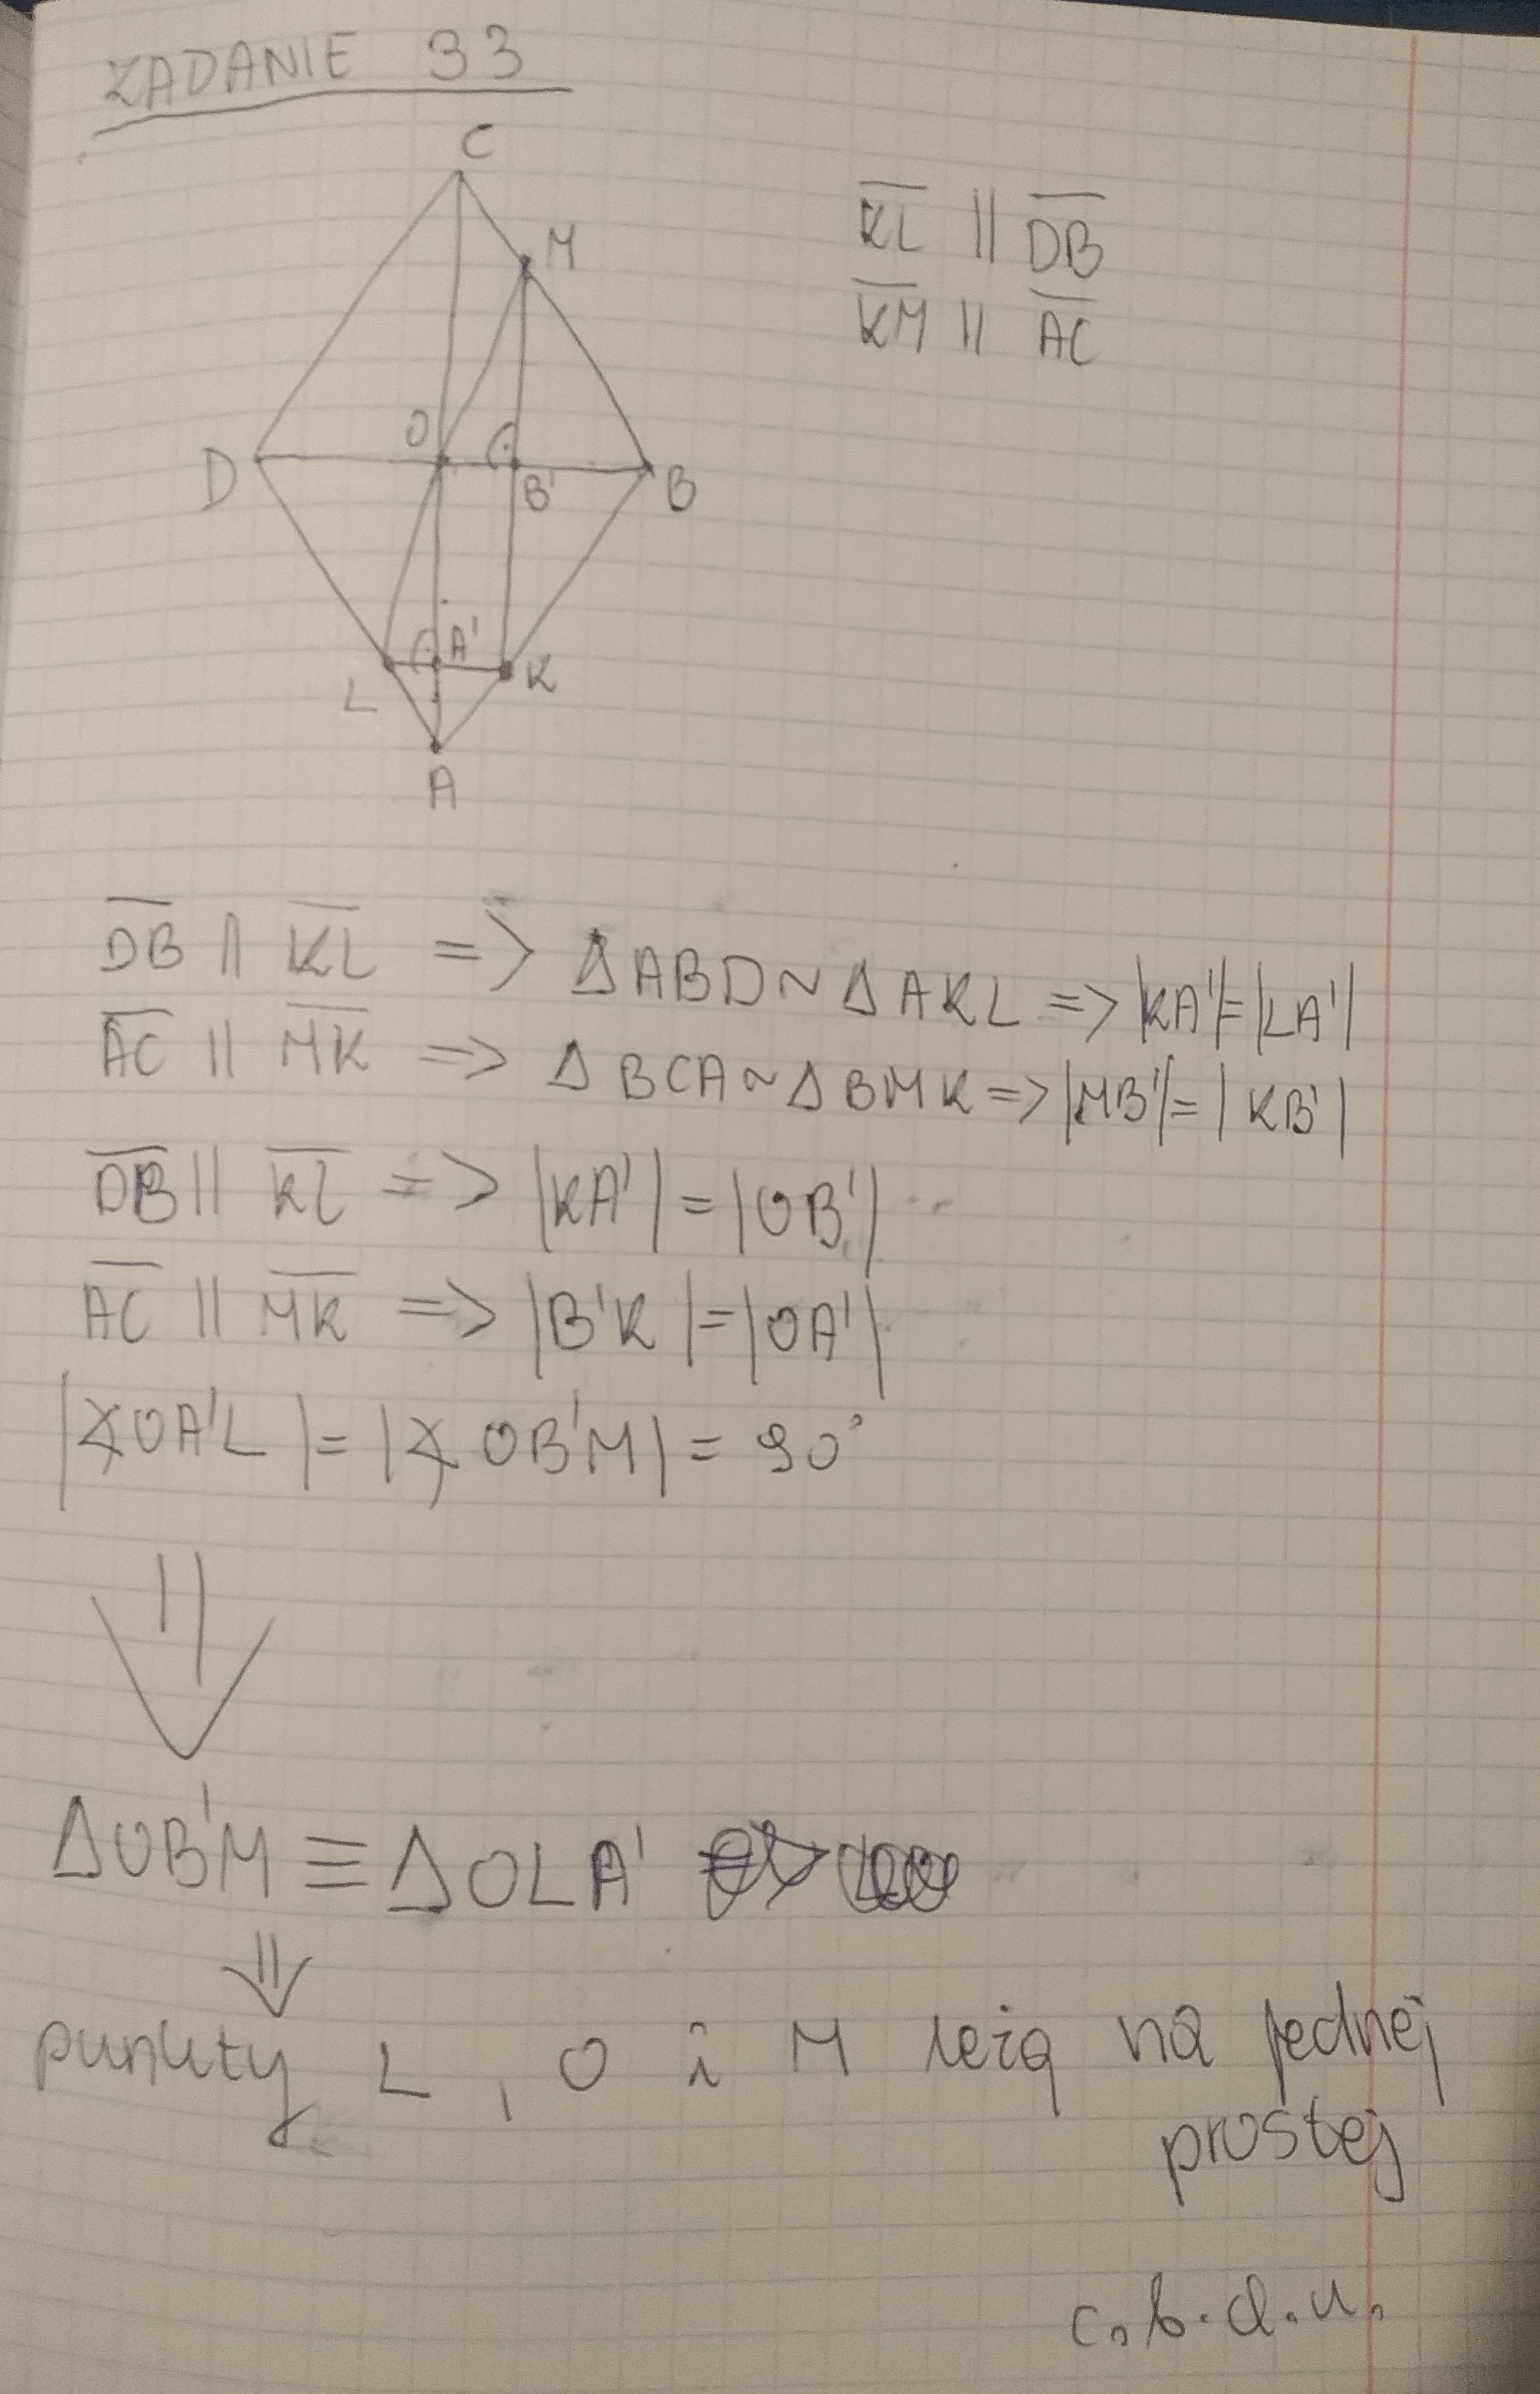 ZADANIE 33
C
M
KL || DB
KM || AC
O
D
B'
B
A'
L
K
A
DB || KL => ΔABD ~ ΔAKL => |KA'| = |LA'|
AC || MK => ΔBCA ~ ΔBMK => |MB'| = |KB'|
DB || KL => |KA'| = |OB'|
AC || MK => |B'K| = |OA'|
|∡OA'L| = |∡OB'M| = 90°
ΔOB'M ≡ ΔOLA'
punkty L, O i M leżą na jednej
prostej
c.b.d.u.